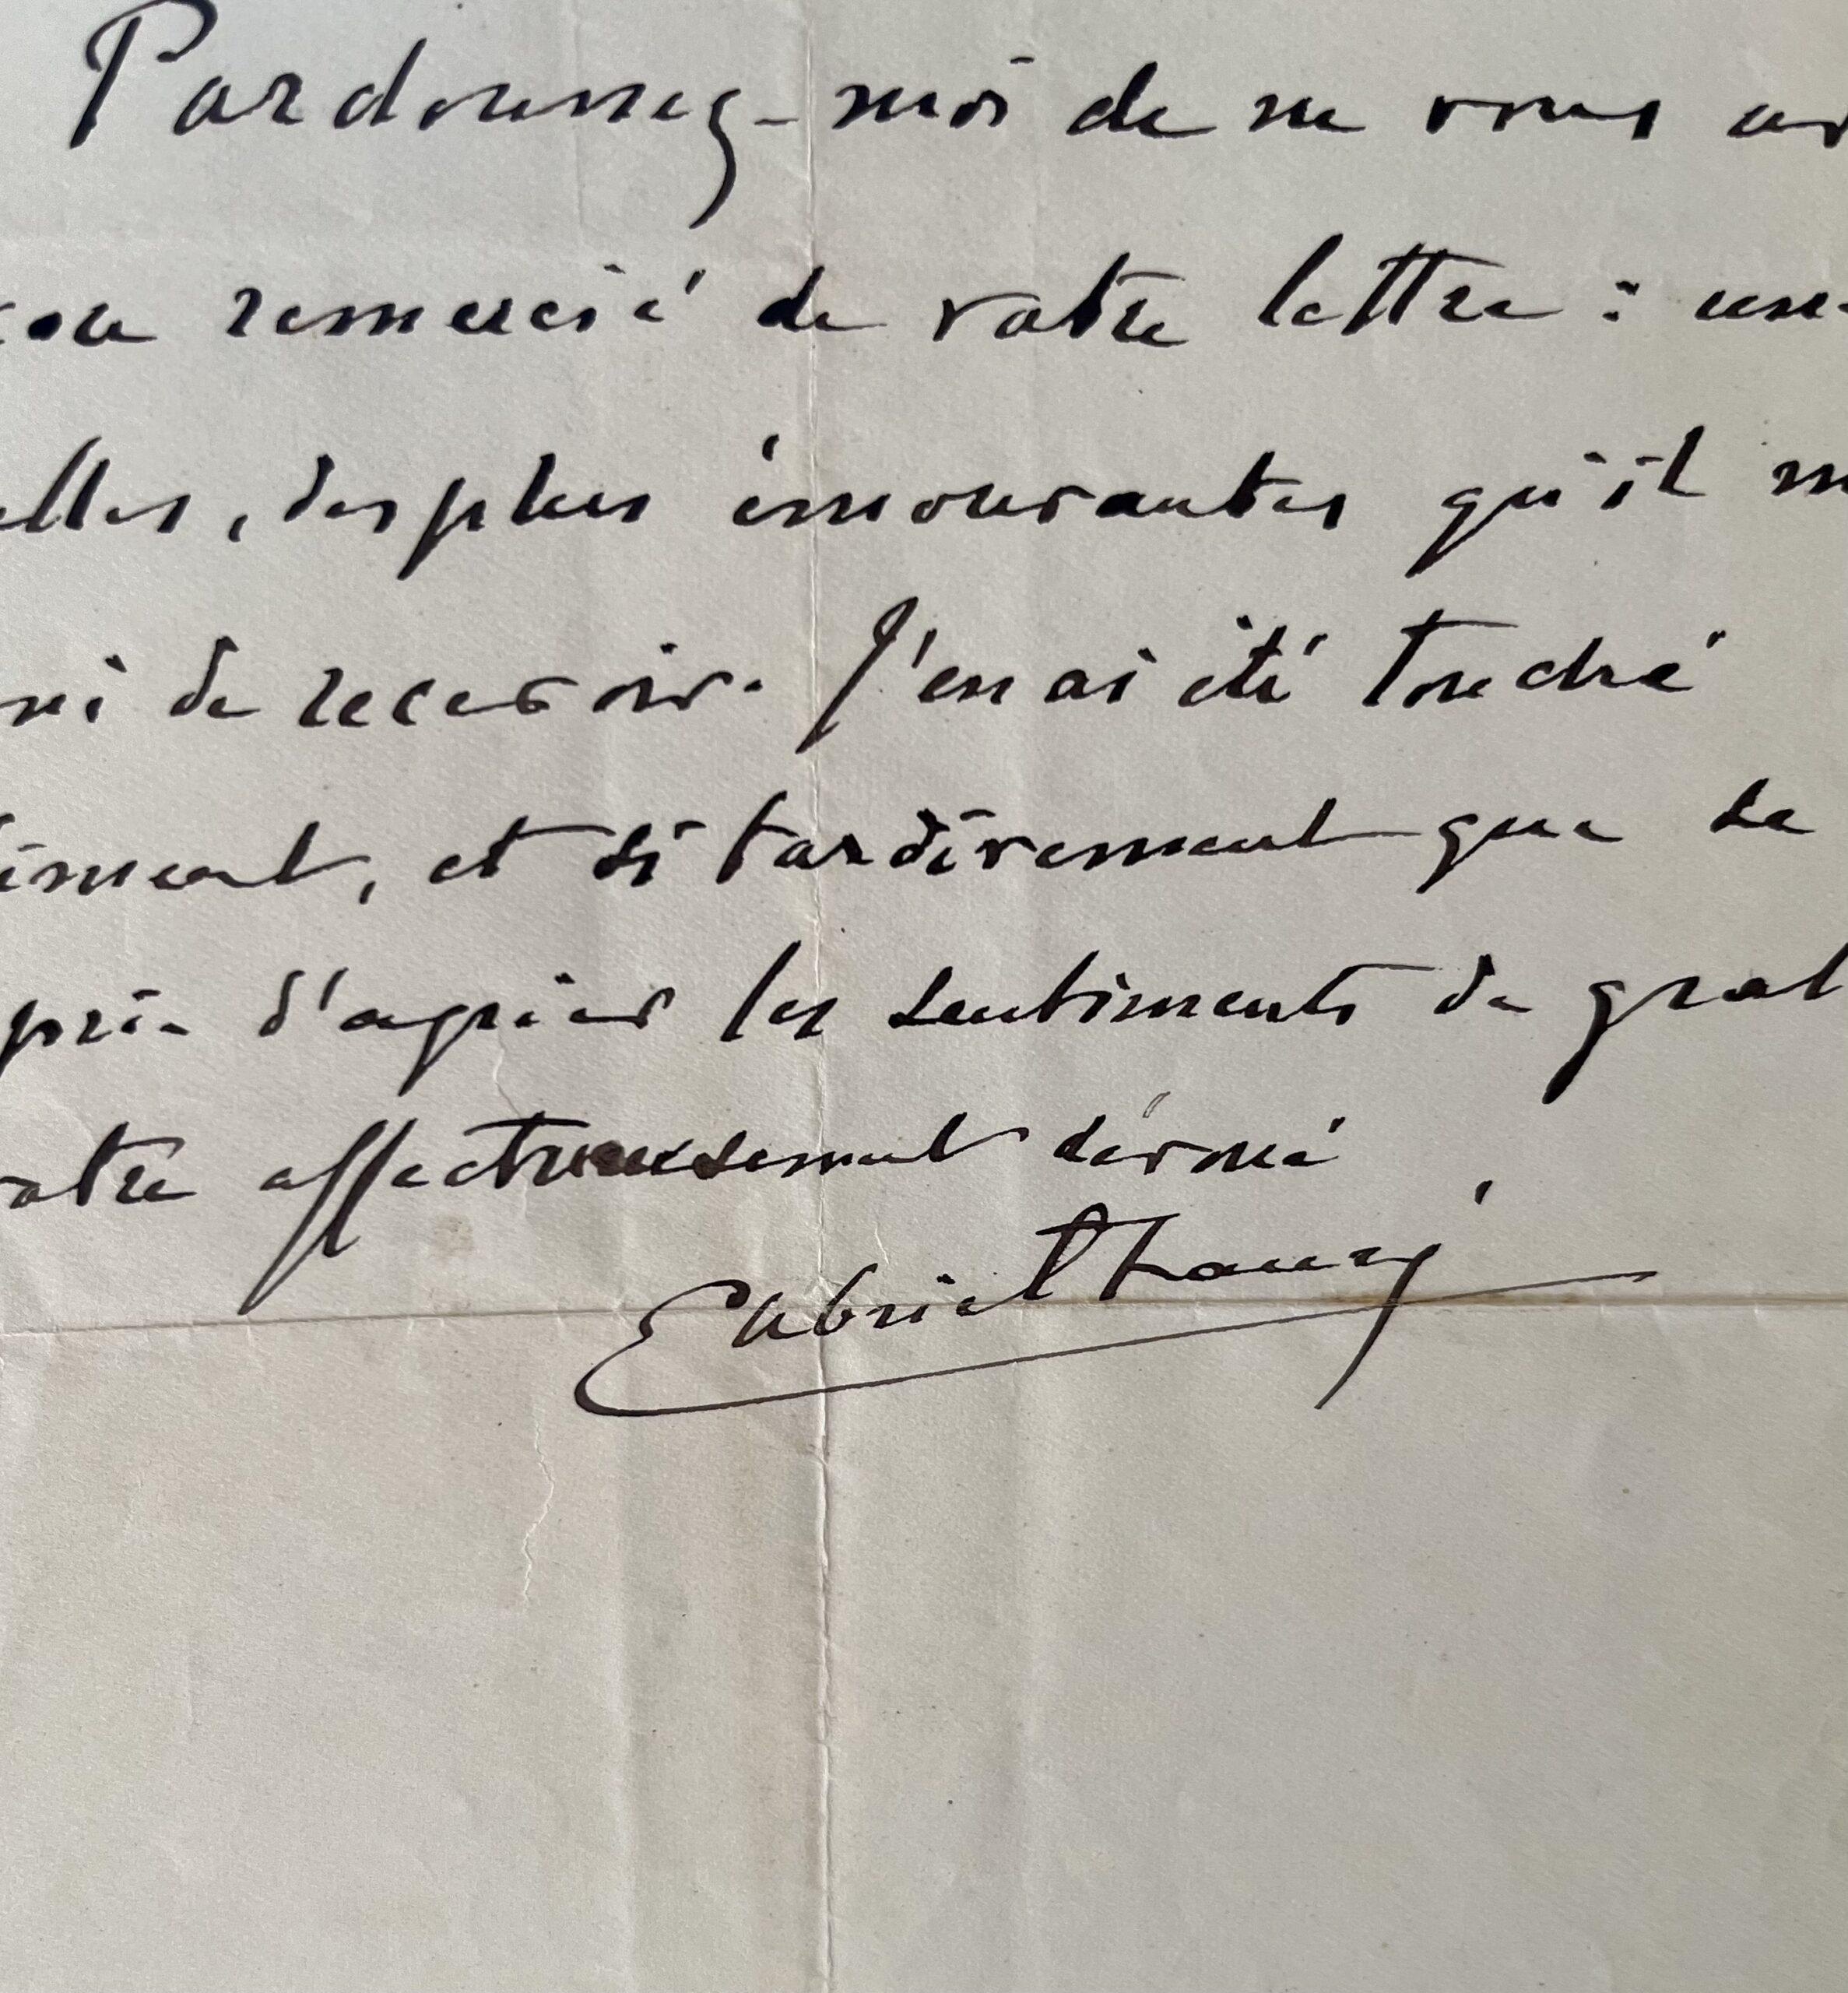 Pardonnez-moi de ne vous av
remercié de votre lettre : une
elles, des plus émouvantes qu'il m
de recevoir. J'en ai été touché
iment, et si tardivement que se
prie d'agréer les sentiments de grat
votre affectueusement dévoué
Gabriel Fauré